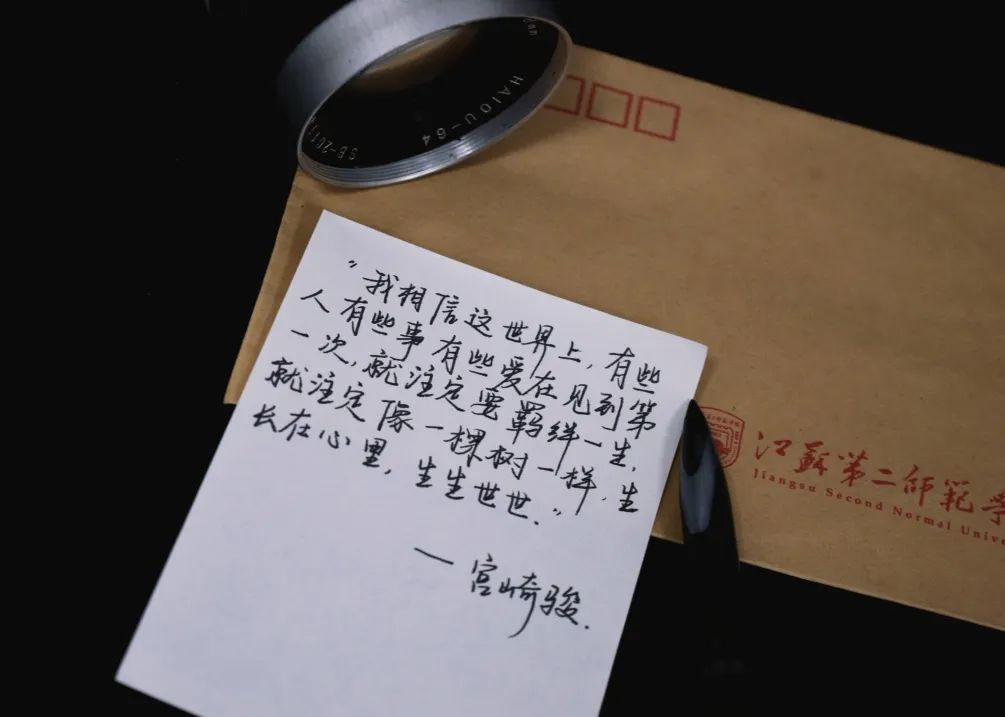 HAIOU-64
“我相信这世界上，有些
人有些事有些爱在见到第
一次，就注定要羁绊一生，
就注定像一棵树一样，生
长在心里，生生世世.”
— 宫崎骏.
江苏第二师范学
Jiangsu Second Normal Unive